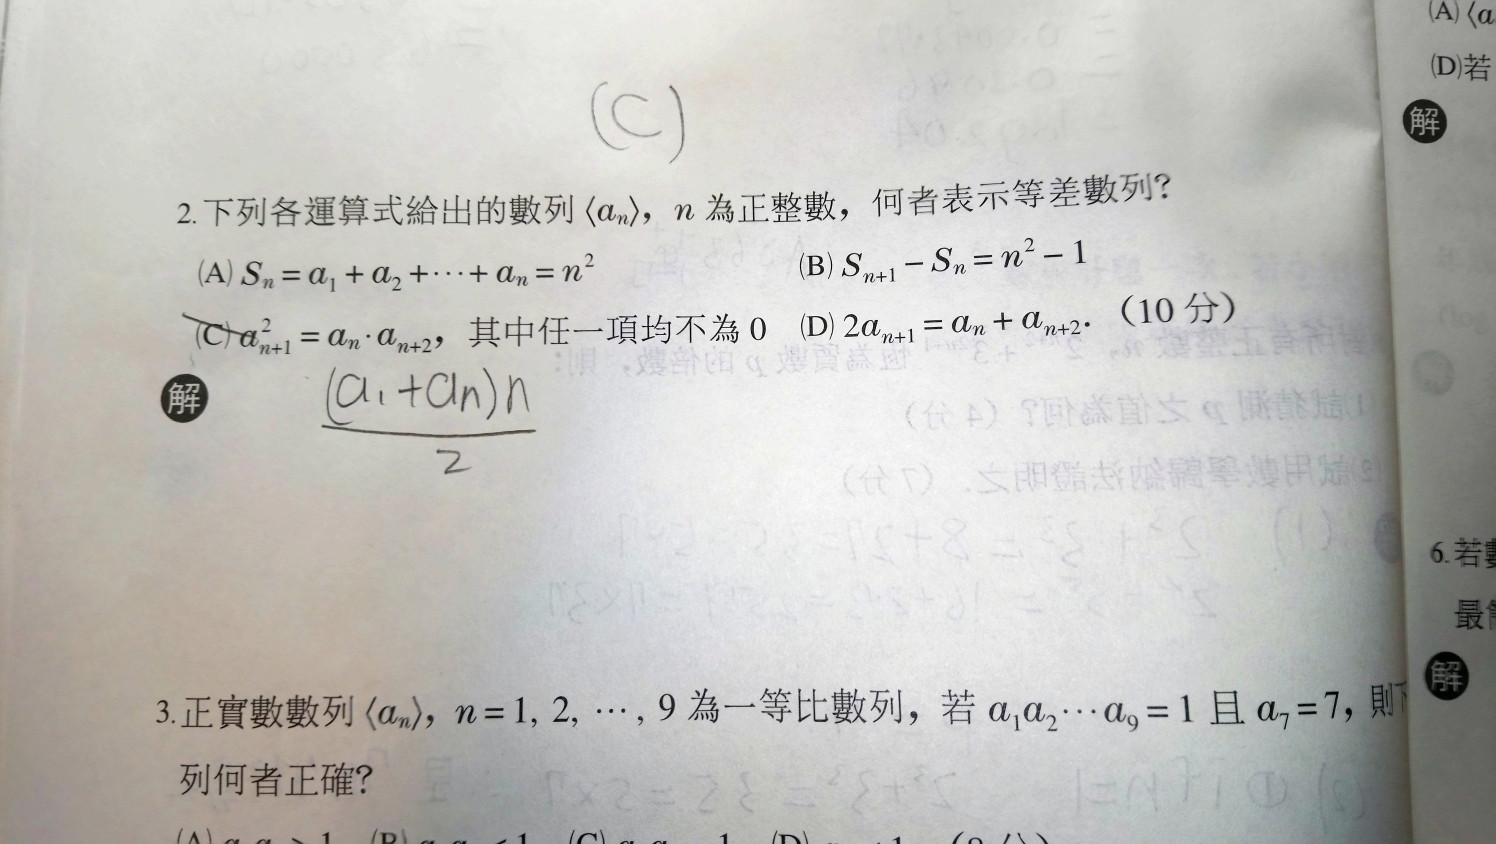 (A)⟨a
(D)若
解
(C)
2.下列各運算式給出的數列⟨aₙ⟩，n 為正整數，何者表示等差數列？
(A) Sₙ = a₁ + a₂ + ⋯ + aₙ = n²　(B) Sₙ₊₁ − Sₙ = n² − 1
(C) a²ₙ₊₁ = aₙ · aₙ₊₂，其中任一項均不為 0　(D) 2aₙ₊₁ = aₙ + aₙ₊₂.（10 分）
解
(a₁+aₙ)n
2
3.正實數數列⟨aₙ⟩，n = 1, 2, ⋯, 9 為一等比數列，若 a₁a₂⋯a₉ = 1 且 a₇ = 7，則下
列何者正確？
6.若數
最
解